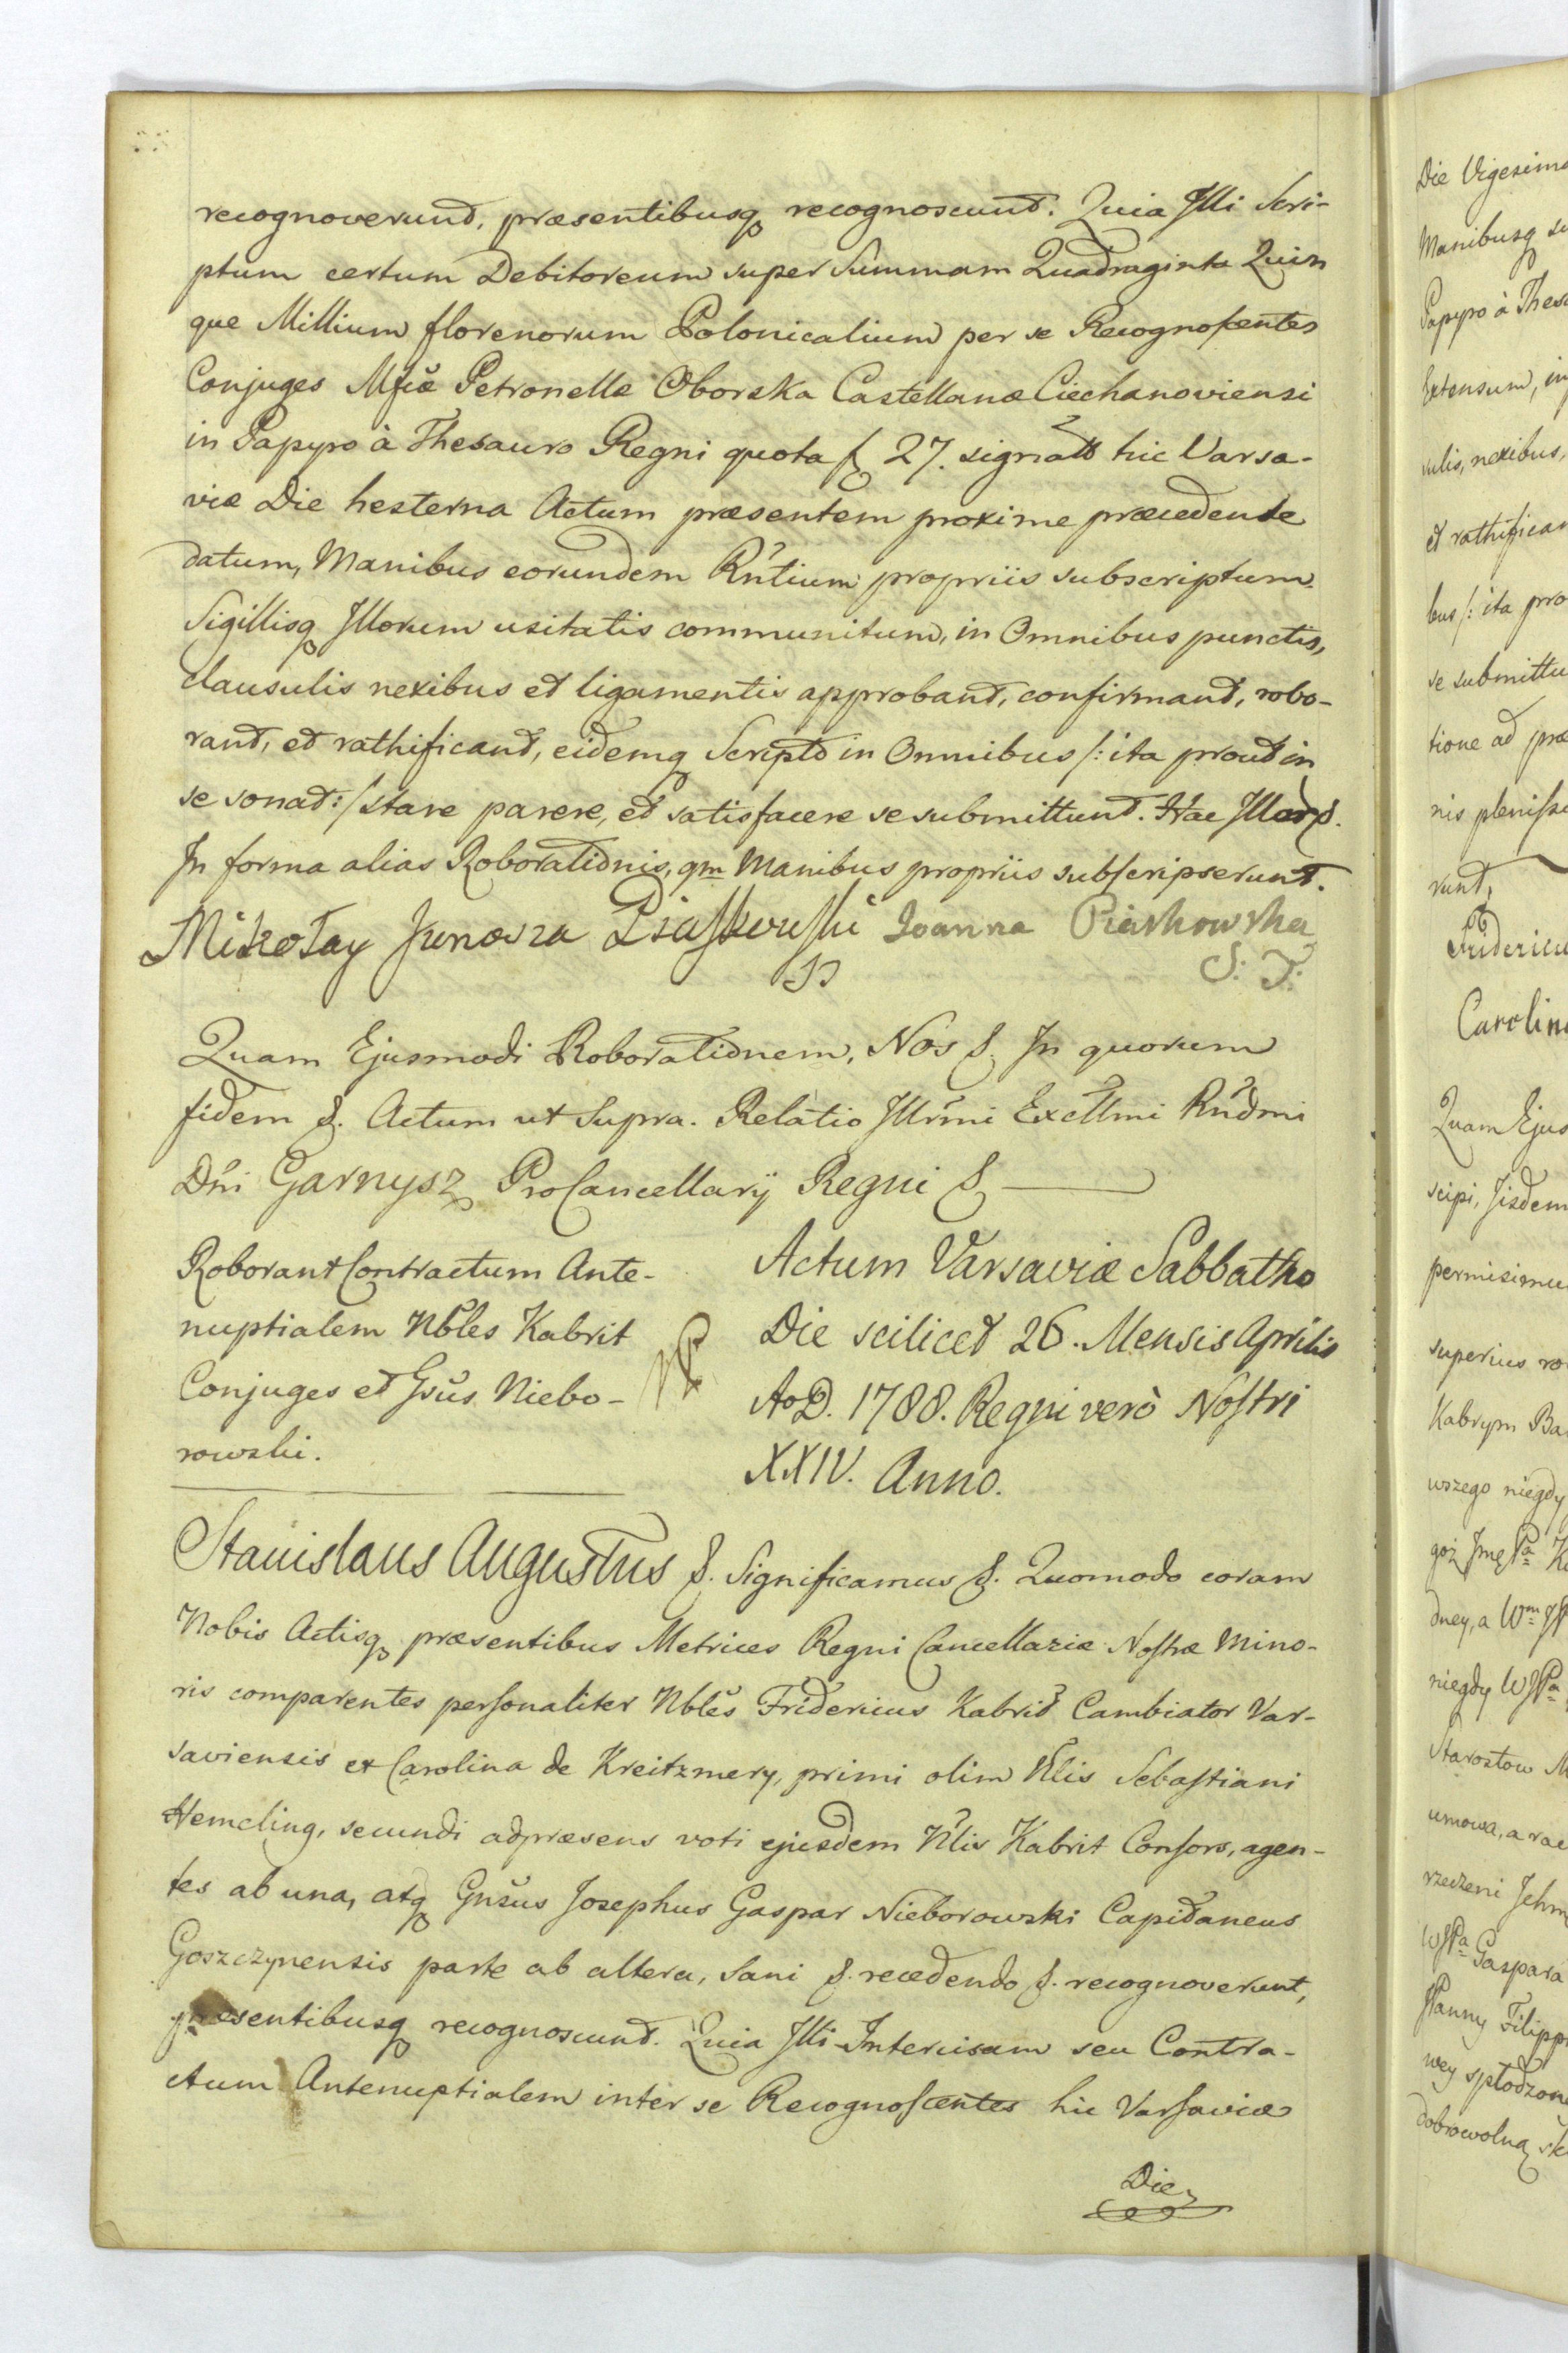 recognoverunt, præsentibusq recognoscunt. Quia Illi Scri-
ptum certum Debitoreum super Summam Quadraginta Quin
que Millium florenorum Polonicalium per se Recognoscentes
Conjuges Mfcæ Petronellæ Oborska Castellanæ Ciechanoviensi
in Papyro à Thesauro Regni quota f 27. signatt hic Varsa-
viæ Die hesterna Actum præsentem proxime præcedente
datum, Manibus eorundem Rntium propriis subscriptum
Sigillisq Illorum usitatis communitum, in Omnibus punctis,
clausulis nexibus et ligamentis approbant, confirmant, robo-
rant, et rathificant, eidemq Scripto in Omnibus /: ita prout in
se sonat :/ stare parere, et satisfacere se submittunt. Hac
In forma alias Roborationis, qm Manibus propriis subscripserunt.
Mikołay Junosza Piaskowski Joanna Piaskowska
Quam Ejusmodi Roborationem, Nos &. In quorum
fidem &. Actum ut Supra. Relatio Illrmi Excellmi Rndmi
Dni Garnysz ProCancellarÿ Regni &
Roborant Contractum Ante-
nuptialem Nbles Kabrit
Conjuges et Gsus Niebo-
rowski.
Actum Varsaviæ Sabbatho
Die scilicet 26. Mensis Aprilis
AoD. 1788. Regni verò Nostri
XXIV. Anno.
Stanislaus Augustus &. Significamus &. Quomodo coram
Nobis Actisq præsentibus Metrices Regni Cancellariæ Nostræ Mino-
ris comparentes personaliter Nbles Fridericus Kabrit Cambiator Var-
saviensis et Carolina de Kreitzmery, primi olim Nlis Sebastiani
Hemeling, secundi adpræsens voti ejusdem Nlis Kabrit Consors, agen-
tes ab una, atq Gnsus Josephus Gaspar Nieborowski Capitaneus
Goszczynensis parte ab altera, Sani &. recedendo &. recognoverunt,
præsentibusq recognoscunt. Quia Illi Intercisam seu Contra-
ctum Antenuptialem inter se Recognoscentes hic Varsaviæ
Die
Die Vigesima
Manibusq
Papyro à
Extensum,
nexibus,
et
bus /: ita
se
tione ad
nis
runt,
Quam
scipi, Iisdem
superius
Kabrym
wszego niegdy
goż
dney, a
niegdy
Starostow
umowa, a
rzeczeni
Gaspara
Panny
wey
dobrowolną